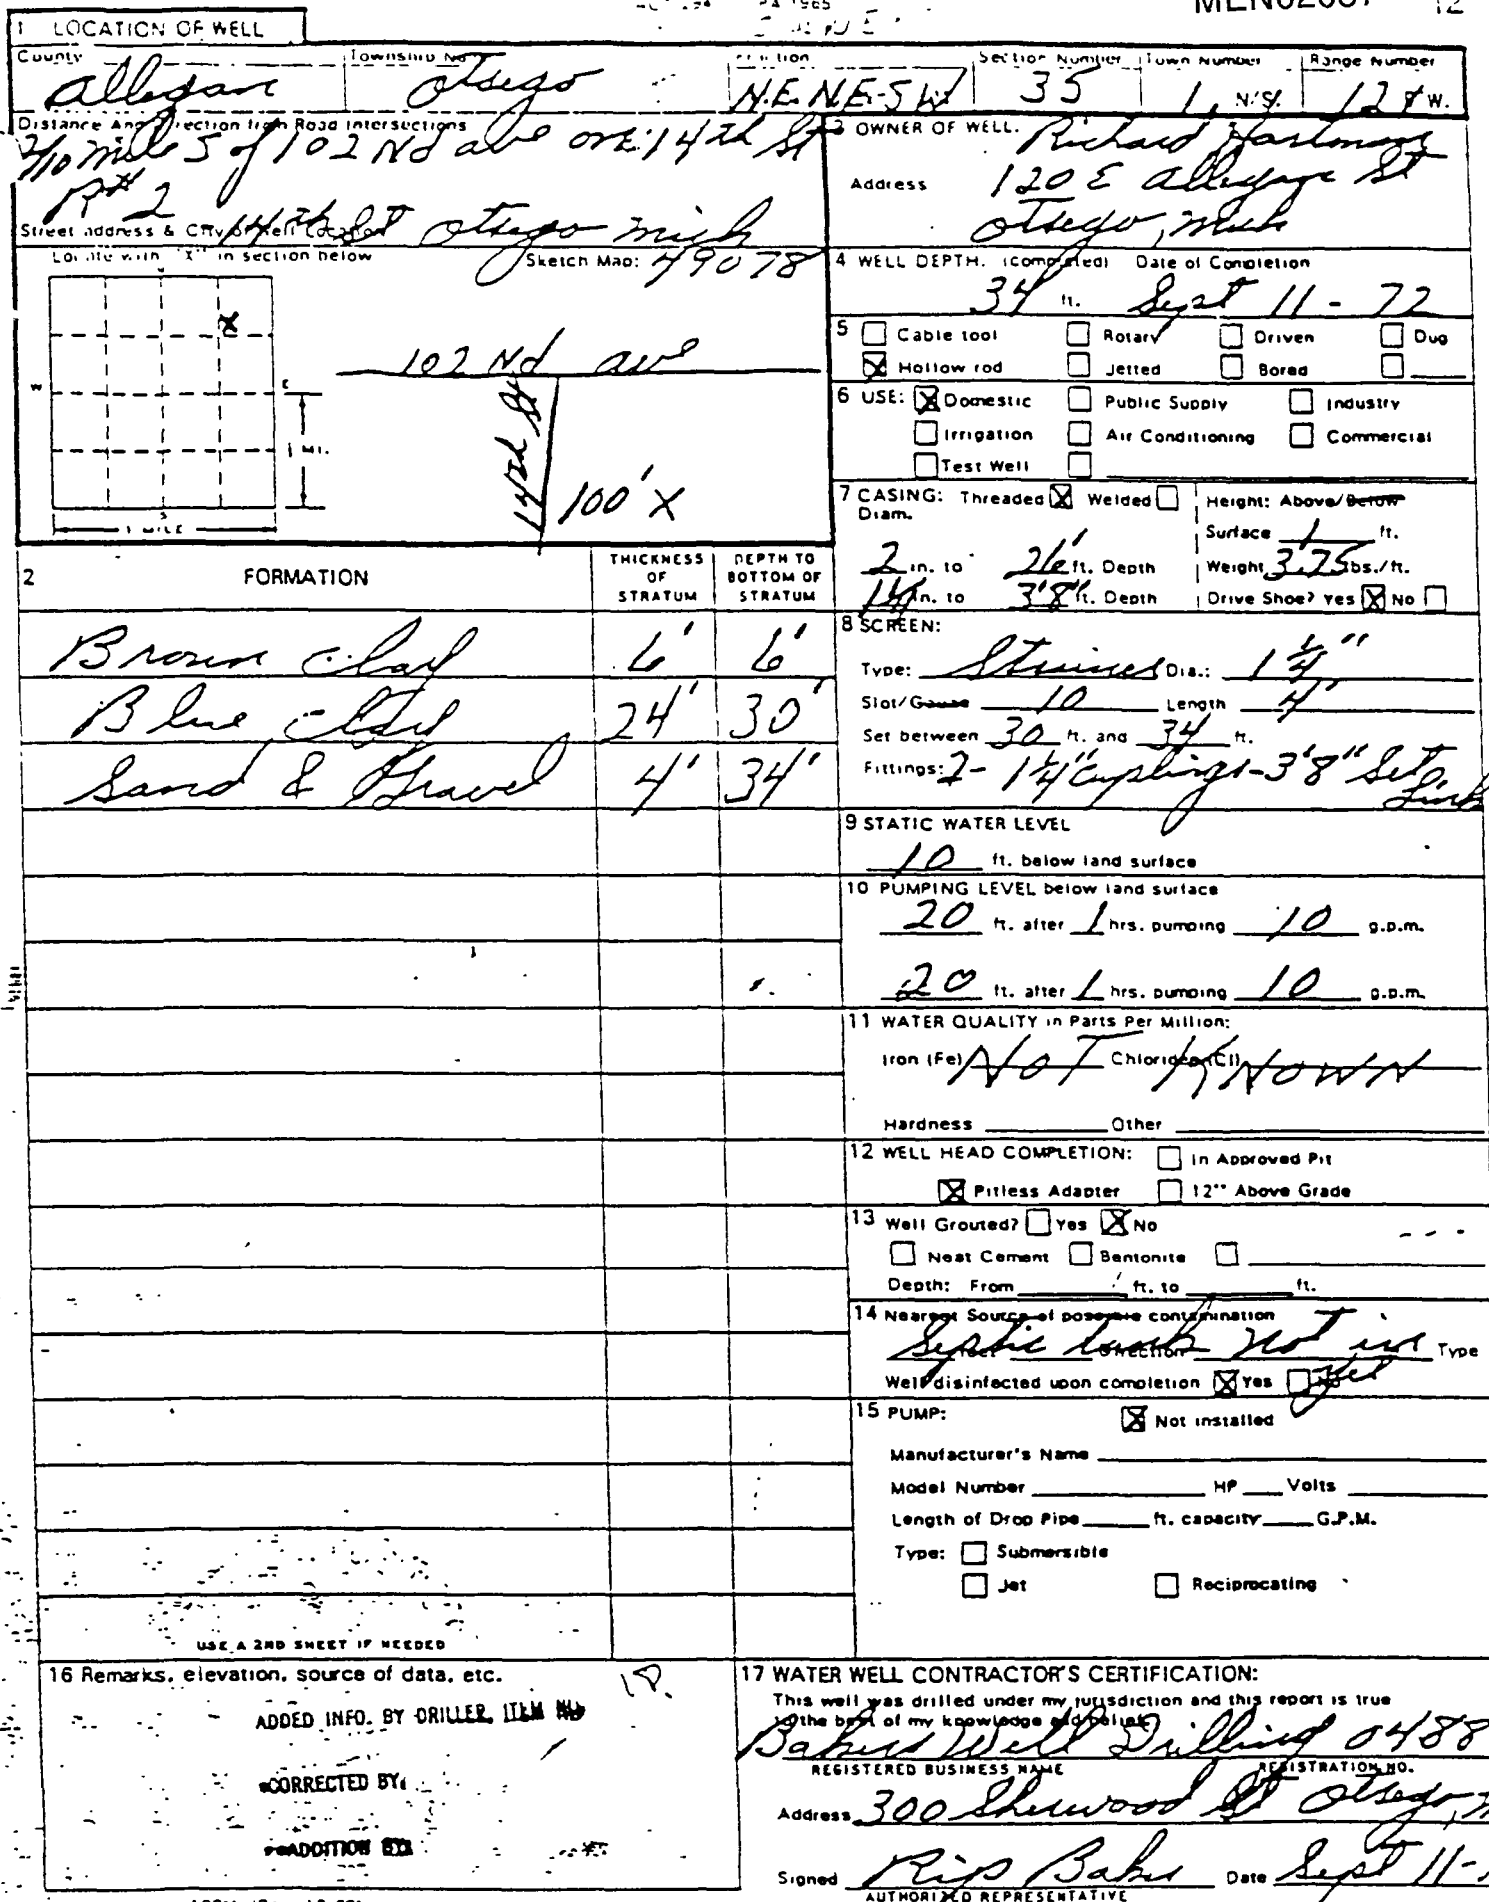 1 LOCATION OF WELL
12
County Allegan Township Otsego Fraction N.E. N.E. S.W. Section Number 35 Town Number 1, N/S. Range Number 12 W.
Distance And Direction from Road Intersections
2/10 mile S of 102 Nd ave on 14th St
R# 2
14th St Otsego Mich
Street address & City of Well Location
49078
Locate with "X" in section below
Sketch Map:
X
W
E
S
½ MI.
1 MILE
102 Nd ave
14th St
100' X
3 OWNER OF WELL: Richard Hartman
Address 120 E Allegan St
Otsego, Mich
4 WELL DEPTH: (completed) Date of Completion
34 ft. Sept 11 - 72
5 Cable tool Rotary Driven Dug
Hollow rod Jetted Bored
6 USE: Domestic Public Supply Industry
Irrigation Air Conditioning Commercial
Test Well
7 CASING: Threaded Welded Height: Above/Below
Diam.
Surface 1 ft.
2 in. to 26' ft. Depth Weight 3.75 lbs./ft.
1¼ in. to 3'8" ft. Depth Drive Shoe? Yes No
8 SCREEN:
Type: Strainer Dia.: 1 ¼"
Slot/Gauze 10 Length 4'
Set between 30 ft. and 34 ft.
Fittings: 2- 1¼" Cuplings-3'8" Set
9 STATIC WATER LEVEL
10 ft. below land surface
10 PUMPING LEVEL below land surface
20 ft. after 1 hrs. pumping 10 g.p.m.
20 ft. after 1 hrs. pumping 10 g.p.m.
11 WATER QUALITY in Parts Per Million:
Iron (Fe) NOT Chlorides (Cl) KNOWN
Hardness Other
12 WELL HEAD COMPLETION: In Approved Pit
Pitless Adapter 12" Above Grade
13 Well Grouted? Yes No
Neat Cement Bentonite
Depth: From ft. to ft.
14 Nearest Source of possible contamination
Septic tank not in yet
feet Direction Type
Well disinfected upon completion Yes No
15 PUMP: Not installed
Manufacturer's Name
Model Number HP Volts
Length of Drop Pipe ft. capacity G.P.M.
Type: Submersible
Jet Reciprocating
2 FORMATION THICKNESS OF STRATUM DEPTH TO BOTTOM OF STRATUM
Brown Clay 6' 6'
Blue Clay 24' 30'
Sand & Gravel 4' 34'
USE A 2ND SHEET IF NEEDED
16 Remarks, elevation, source of data, etc.
ADDED INFO. BY DRILLER, ITEM NO.
*CORRECTED BY:
**ADDITION BY:
17 WATER WELL CONTRACTOR'S CERTIFICATION:
This well was drilled under my jurisdiction and this report is true
to the best of my knowledge and belief.
Bakers Well Drilling 0488
REGISTERED BUSINESS NAME REGISTRATION NO.
Address 300 Sherwood St Otsego,
Signed Rip Baker Date Sept 11-
AUTHORIZED REPRESENTATIVE